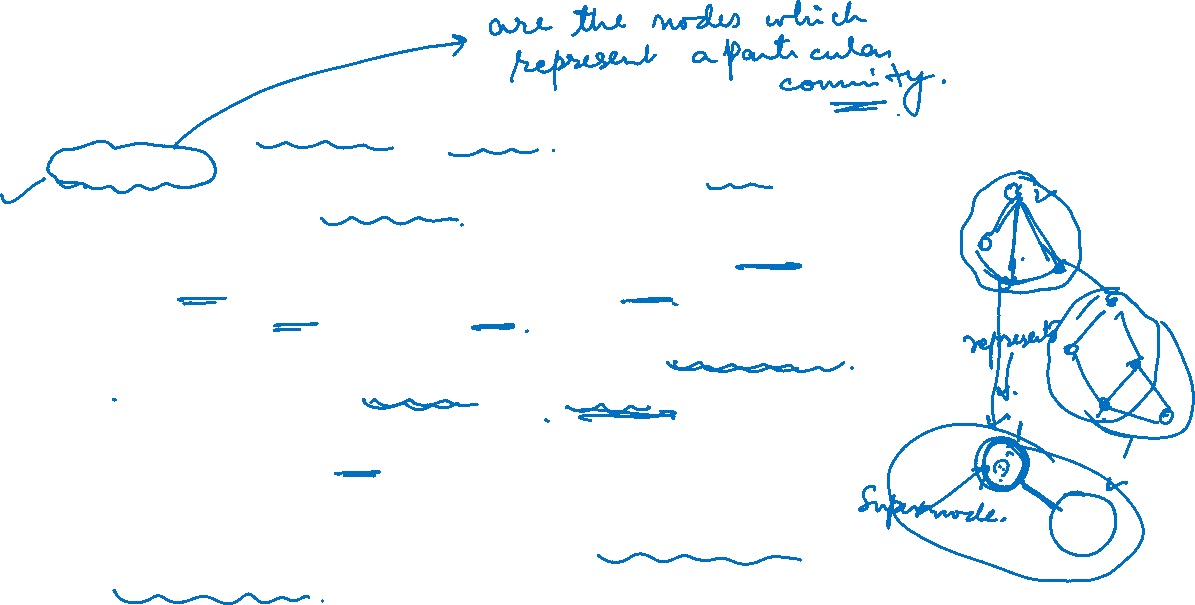 are the nodes which
represent a particular
commity.
represents
Supernode.